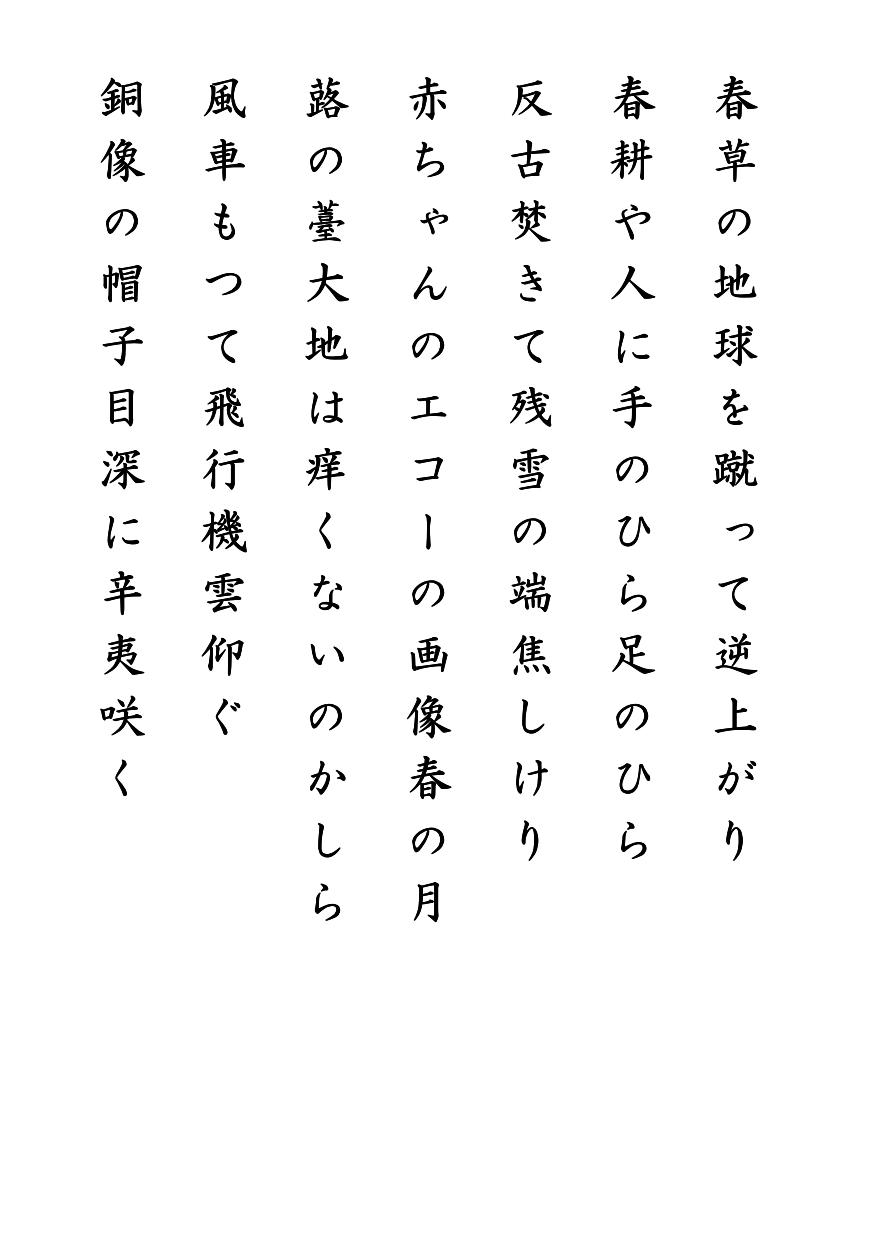 春草の地球を蹴って逆上がり
春耕や人に手のひら足のひら
反古焚きて残雪の端焦しけり
赤ちゃんのエコーの画像春の月
蕗の薹大地は痒くないのかしら
風車もつて飛行機雲仰ぐ
銅像の帽子目深に辛夷咲く